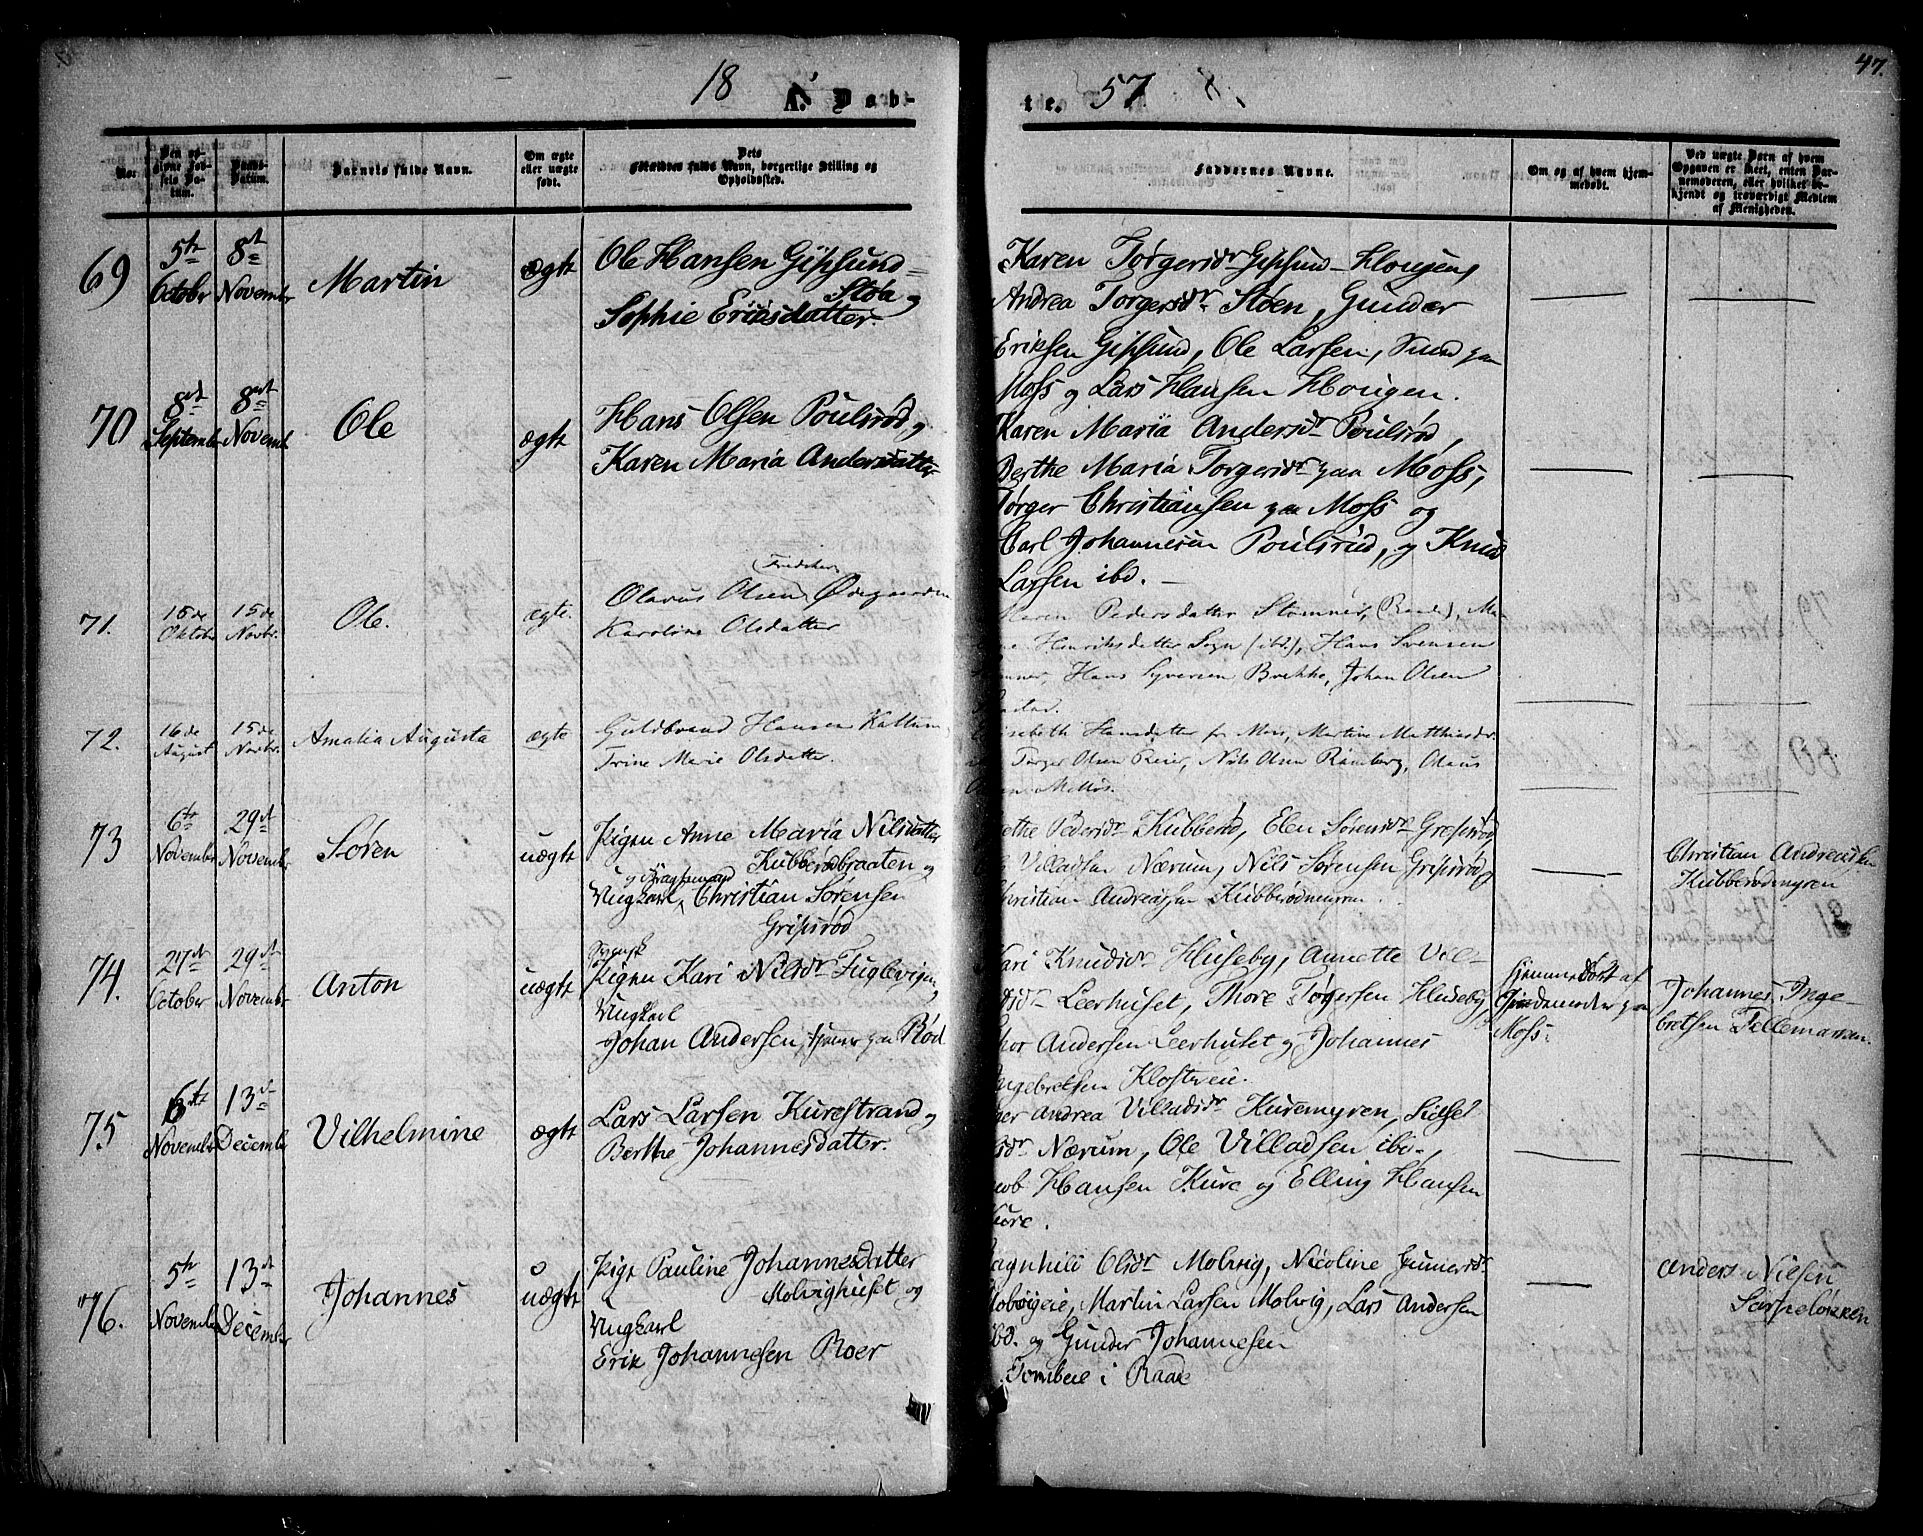 47.
18 57
A. Døb-
te.
Nor
Den op-
givne Fød-
sels Da-
tum.
Daabs-
Datum.
Barnets fulde Navn.
Om ægte
eller uægte
født.
Dets
Forældres fulde Navn, borgerlige Stilling og
Opholdssted.
Faddernes Navne.
Om og af hvem hjem-
medøbt.
Ved uægte Børn af hvem
Opgaven er skeet, enten Bar-
nemoderen, eller hvilket be-
kjendt og troværdigt Medlem
af Menigheden.
69
5te October
8de November
Martin
ægte
Ole Hansen Gipsund-
Støa og
Sophie Eriksdatter.
Karen Torgersdr Gipsund-Hougen,
Andrea Torgersdr Støen, Gunder
Eriksen Gipsund, Ole Larsen, paa
Moss og Lars Hansen Hougen.
70
8de September
8de Novemb.
Ole
ægte
Hans Olsen Poulsrød og
Karen Maria Andersdatter
Karen Maria Andersdr Poulsrød,
Berthe Maria Torgersdr paa Moss,
Tørger Christiansen paa Moss og
Carl Johannesen Poulsrød, og Knud
Larsen ibd. —
71.
15de Oktobr
15de Novbr.
Ole.
ægte.
Olavus Olsen Ødegaarden
Karoline Olsdatter
Maren Pedersdatter Stomner,
Henriksdatter Sogn (ibd.), Hans Svensen
Hans Syversen Brekke, Johan Olsen
72.
16de August
15de Novbr.
Amalia Augusta
ægte
Guldbrand Hansen Kallum,
Trine Marie Olsdatter.
Hansdatter fr Moss, Martine Matthisdr.
Torger Olsen Reier, Nils Olsen Ramberg, Olaus
73
6te November
29de November
Søren
uægte
Pigen Anne Maria Nilsdatter
Kubberødbraaten og
Ungkarl Christian Sørensen
Gripsrød
Berthe Pedersdr Kubberød, Elen Sørensdr Gripsrød
Villadsen Nærum, Nils Sørensen Gripsrød og
Christian Andreassen Kubberødmyren.
Christian Andreassen
Kubberødmyren
74.
27de October
29de November
Anton
uægte
Pigen Kari Nilsdr Fuglevigen,
Ungkarl
Johan Andersen, tjener paa Rød
Kari Knudsdr Huseby, Annette Vil-
Leerhuset, Thore Tørgersen Huseby,
Thor Andersen Leerhuset og Johannes
Ingebretsen Klostereie.
hjemmedøbt af
Jordemoder paa
Moss.
Johannes Inge-
bretsen Tellemarken.
75
6te November
13de Decembr
Vilhelmine
ægte
Lars Larsen Kurestrand og
Berthe Johannesdatter.
Andrea Villadsdr Kuremyren, Sidsel
Nærum, Ole Villadsen ibd.,
Jacob Hansen Kure og Elling Hansen
Kure.
76.
5te November
13de December
Johannes
uægte
Pige Pauline Johannesdatter
Molvighuset og
Ungkarl
Erik Johannesen Roer
Ragnhild Olsdr Molvig, Nicoline Gunersdr
Molvigeie, Martin Larsen Molvig, Lars Andersen
ibd. og Gunder Johannesen
Tombeie i Raade
Anders Nielsen
Sarpeløkken